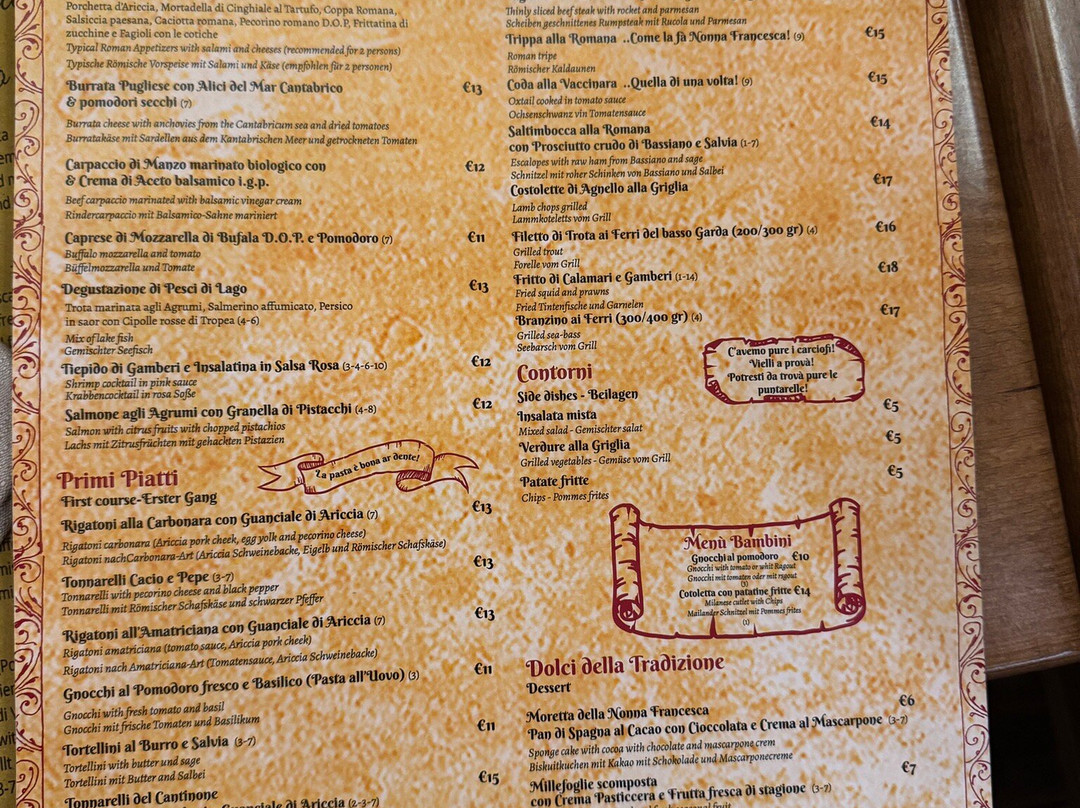 Porchetta d'Ariccia, Mortadella di Cinghiale al Tartufo, Coppa Romana,
Salsiccia paesana, Caciotta romana, Pecorino romano D.O.P, Frittatina di
zucchine e Fagioli con le cotiche
Typical Roman Appetizers with salami and cheeses (recommended for 2 persons)
Typische Römische Vorspeise mit Salami und Käse (empfohlen für 2 personen)
Burrata Pugliese con Alici del Mar Cantabrico €13
& pomodori secchi (7)
Burrata cheese with anchovies from the Cantabricum sea and dried tomatoes
Burratakäse mit Sardellen aus dem Kantabrischen Meer und getrockneten Tomaten
Carpaccio di Manzo marinato biologico con €12
& Crema di Aceto balsamico i.g.p.
Beef carpaccio marinated with balsamic vinegar cream
Rindercarpaccio mit Balsamico-Sahne mariniert
Caprese di Mozzarella di Bufala D.O.P. e Pomodoro (7) €11
Buffalo mozzarella and tomato
Büffelmozzarella und Tomate
Degustazione di Pesci di Lago €13
Trota marinata agli Agrumi, Salmerino affumicato, Persico
in saor con Cipolle rosse di Tropea (4-6)
Mix of lake fish
Gemischter Seefisch
Tiepido di Gamberi e Insalatina in Salsa Rosa (3-4-6-10) €12
Shrimp cocktail in pink sauce
Krabbencocktail in rosa Soße
Salmone agli Agrumi con Granella di Pistacchi (4-8) €12
Salmon with citrus fruits with chopped pistachios
Lachs mit Zitrusfrüchten mit gehackten Pistazien
La pasta è bona ar dente!
Primi Piatti
First course-Erster Gang
Rigatoni alla Carbonara con Guanciale di Ariccia (7) €13
Rigatoni carbonara (Ariccia pork cheek, egg yolk and pecorino cheese)
Rigatoni nachCarbonara-Art (Ariccia Schweinebacke, Eigelb und Römischer Schafskäse)
Tonnarelli Cacio e Pepe (3-7) €13
Tonnarelli with pecorino cheese and black pepper
Tonnarelli mit Römischer Schafskäse und schwarzer Pfeffer
Rigatoni all'Amatriciana con Guanciale di Ariccia (7) €13
Rigatoni amatriciana (tomato sauce, Ariccia pork cheek)
Rigatoni nach Amatriciana-Art (Tomatensauce, Ariccia Schweinebacke)
Gnocchi al Pomodoro fresco e Basilico (Pasta all'Uovo) (3) €11
Gnocchi with fresh tomato and basil
Gnocchi mit frische Tomaten und Basilikum
Tortellini al Burro e Salvia (3-7) €11
Tortellini with butter und sage
Tortellini mit Butter and Salbei
Tonnarelli del Cantinone €15
Guanciale di Ariccia (2-3-7)
Thinly sliced beef steak with rocket and parmesan
Scheiben geschnittenes Rumpsteak mit Rucola und Parmesan
Trippa alla Romana ..Come la fà Nonna Francesca! (9) €15
Roman tripe
Römischer Kaldaunen
Coda alla Vaccinara ..Quella di una volta! (9) €15
Oxtail cooked in tomato sauce
Ochsenschwanz vin Tomatensauce
Saltimbocca alla Romana €14
con Prosciutto crudo di Bassiano e Salvia (1-7)
Escalopes with raw ham from Bassiano and sage
Schnitzel mit roher Schinken von Bassiano und Salbei
Costolette di Agnello alla Griglia €17
Lamb chops grilled
Lammkoteletts vom Grill
Filetto di Trota ai Ferri del basso Garda (200/300 gr) (4) €16
Grilled trout
Forelle vom Grill
Fritto di Calamari e Gamberi (1-14) €18
Fried squid and prawns
Fried Tintenfische und Garnelen
Branzino ai Ferri (300/400 gr) (4) €17
Grilled sea-bass
Seebarsch vom Grill
C'avemo pure i carciofi!
Vielli a provà!
Potresti da trovà pure le
puntarelle!
Contorni
Side dishes - Beilagen
Insalata mista €5
Mixed salad - Gemischter salat
Verdure alla Griglia €5
Grilled vegetables - Gemüse vom Grill
Patate fritte €5
Chips - Pommes frites
Menù Bambini
Gnocchi al pomodoro €10
Gnocchi with tomato or whit Ragout
Gnocchi mit tomaten oder mit ragout
(3)
Cotoletta con patatine fritte €14
Milanese cutlet with Chips
Mailander Schnitzel mit Pommes frites
(1)
Dolci della Tradizione
Dessert
Moretta della Nonna Francesca €6
Pan di Spagna al Cacao con Cioccolata e Crema al Mascarpone (3-7)
Sponge cake with cocoa with chocolate and mascarpone crem
Biskuitkuchen mit Kakao mit Schokolade und Mascarponecreme
Millefoglie scomposta €7
con Crema Pasticcera e Frutta fresca di stagione (3-7)